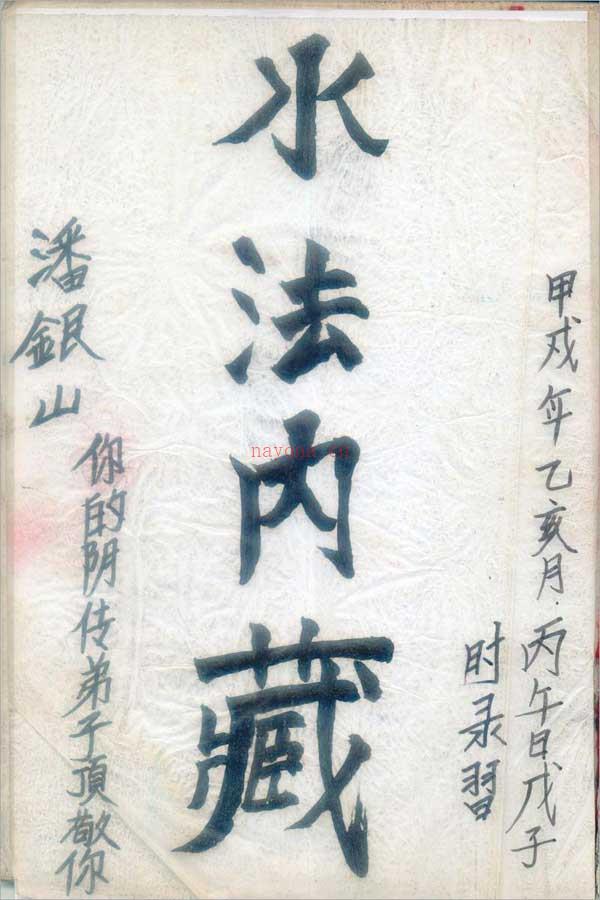 甲戌年乙亥月·丙午日戊子
时录習
水法内藏
潘銀山
你的阴传弟子頂敬你